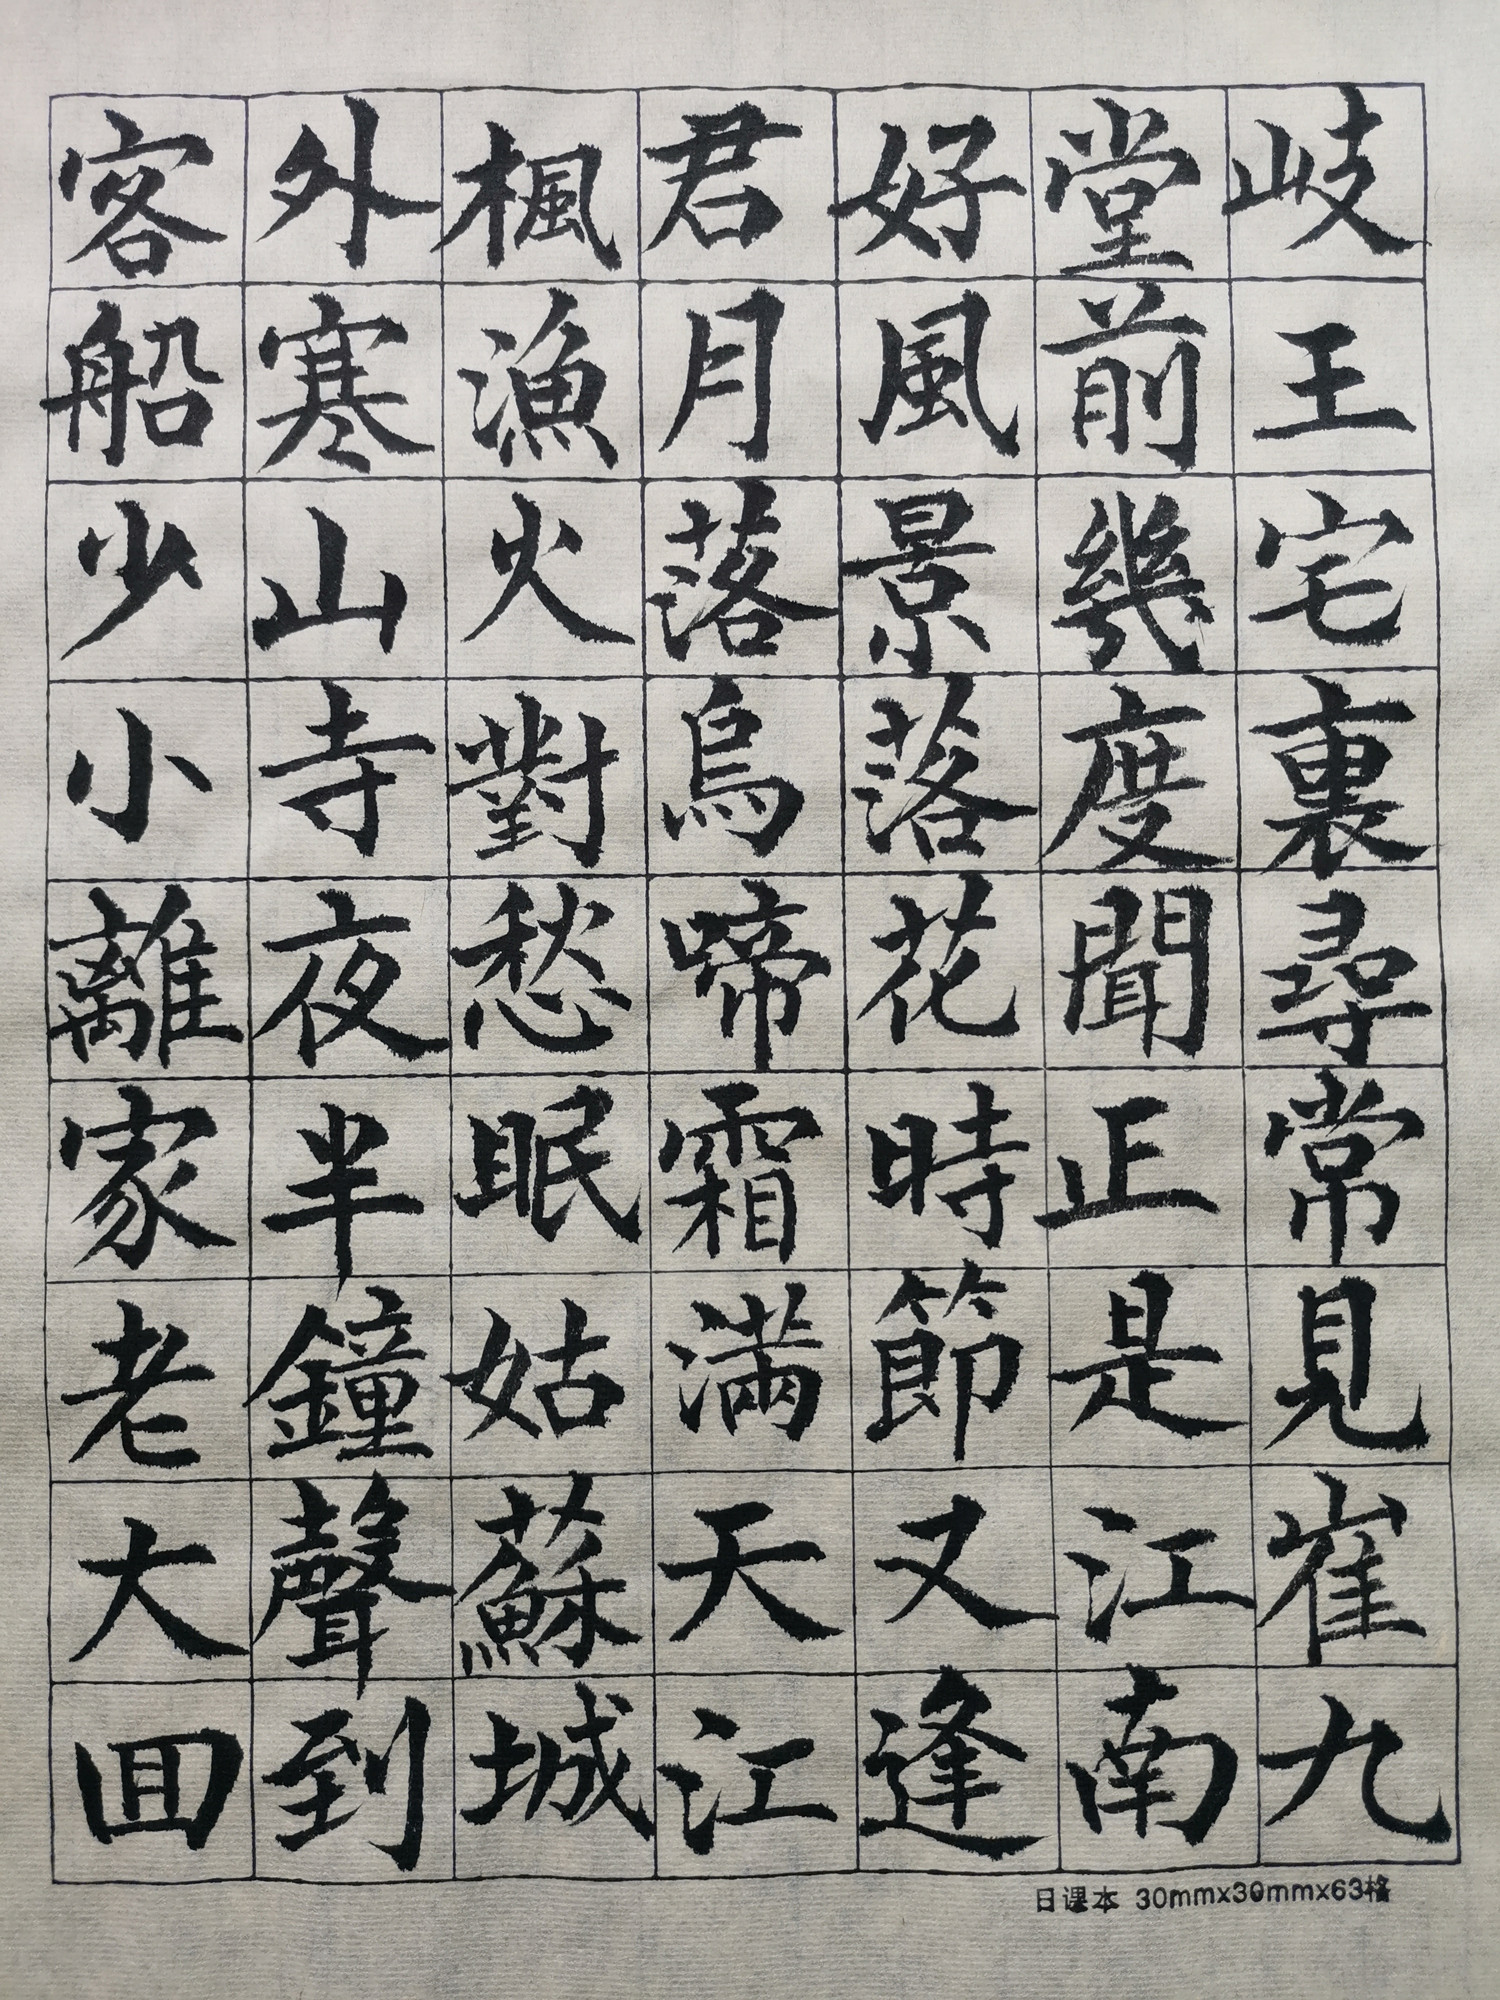 岐王宅裏尋常見崔九
堂前幾度聞正是江南
好風景落花時節又逢
君月落烏啼霜滿天江
楓漁火對愁眠姑蘇城
外寒山寺夜半鐘聲到
客船少小離家老大回
日课本 30mmx30mmx63格